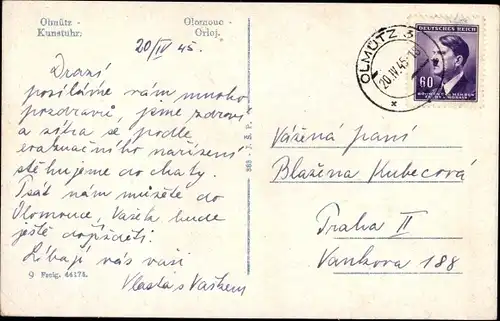 Olmütz - Olomouc -
Kunstuhr. Orloj.
20/IV 45.
Drazí
posíláme vám mnoho
pozdravů, jsme zdraví
a zítra se podle
evakuačního nařízení
stěhujeme do chaty.
Psát nám můžete do
Olomouce, Vašek bude
ještě dojíždět.
Líbají vás vaši
Vlasta s Vaškem
9 Preig. 44175.
J. S. P.
OLMÜTZ 3
20.IV.45-18
DEUTSCHES REICH
60
BÖHMEN UND MÄHREN
Vážená paní
Blažena Kubecová
Praha II
Vankova 188